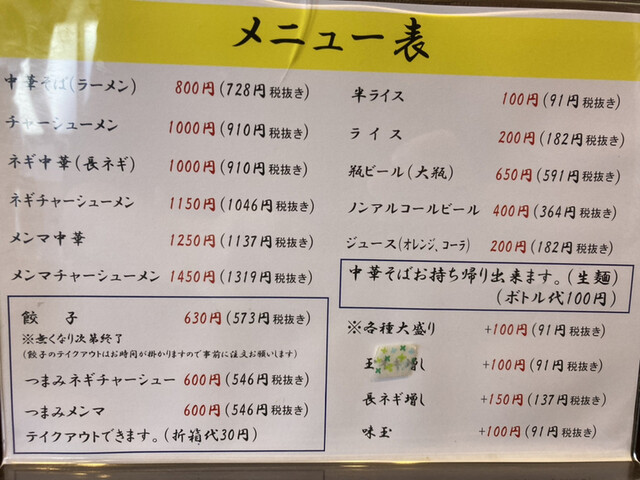 メニュー表
中華そば(ラーメン) 800円(728円税抜き)
チャーシューメン 1000円(910円税抜き)
ネギ中華(長ネギ) 1000円(910円税抜き)
ネギチャーシューメン 1150円(1046円税抜き)
メンマ中華 1250円(1137円税抜き)
メンマチャーシューメン 1450円(1319円税抜き)
餃 子 630円(573円税抜き)
※無くなり次第終了
(餃子のテイクアウトはお時間が掛かりますので事前に注文お願いします)
つまみネギチャーシュー 600円(546円税抜き)
つまみメンマ 600円(546円税抜き)
テイクアウトできます。(折箱代30円)
半ライス 100円(91円税抜き)
ライス 200円(182円税抜き)
瓶ビール(大瓶) 650円(591円税抜き)
ノンアルコールビール 400円(364円税抜き)
ジュース(オレンジ、コーラ) 200円(182円税抜き)
中華そばお持ち帰り出来ます。(生麺)
(ボトル代100円)
※各種大盛り +100円(91円税抜き)
玉 増し +100円(91円税抜き)
長ネギ増し +150円(137円税抜き)
味玉 +100円(91円税抜き)